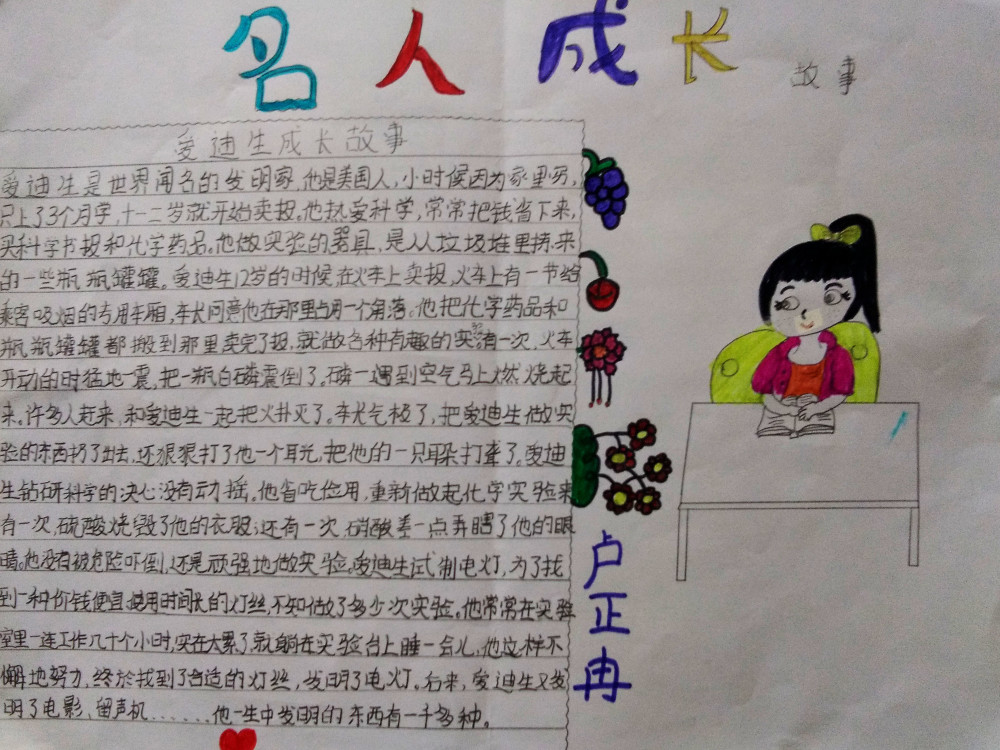 名人成长
故事
爱迪生成长故事
爱迪生是世界闻名的发明家,他是美国人,小时候因为家里穷,
只上了3个月学,十一二岁就开始卖报。他热爱科学,常常把钱省下来,
买科学书报和化学药品。他做实验的器具,是从垃圾堆里捡来
的一些瓶瓶罐罐。爱迪生12岁的时候在火车上卖报,火车上有一节给
乘客吸烟的专用车厢,车长同意他在那里占用一个角落。他把化学药品和
瓶瓶罐罐都搬到那里卖完了报,就做各种有趣的实验有一次,火车
开动的时猛地一震,把一瓶白磷震倒了。磷一遇到空气马上燃烧起
来。许多人赶来,和爱迪生一起把火扑灭了。车长气极了,把爱迪生做实
验的东西扔了出去,还狠狠打了他一个耳光,把他的一只耳朵打聋了。爱迪
生钻研科学的决心没有动摇。他省吃俭用,重新做起化学实验来
有一次,硫酸烧毁了他的衣服;还有一次,硝酸差一点弄瞎了他的眼
睛。他没有被危险吓倒,还是顽强地做实验。爱迪生试制电灯,为了找
到一种价钱便宜使用时间长的灯丝,不知做了多少次实验。他常常在实验
室里一连工作几十个小时,实在太累了,就躺在实验台上睡一会儿,他这样不
懈地努力,终於找到了合适的灯丝,发明了电灯。后来,爱迪生又发
明了电影、留声机......他一生中发明的东西有一千多种。
卢正冉